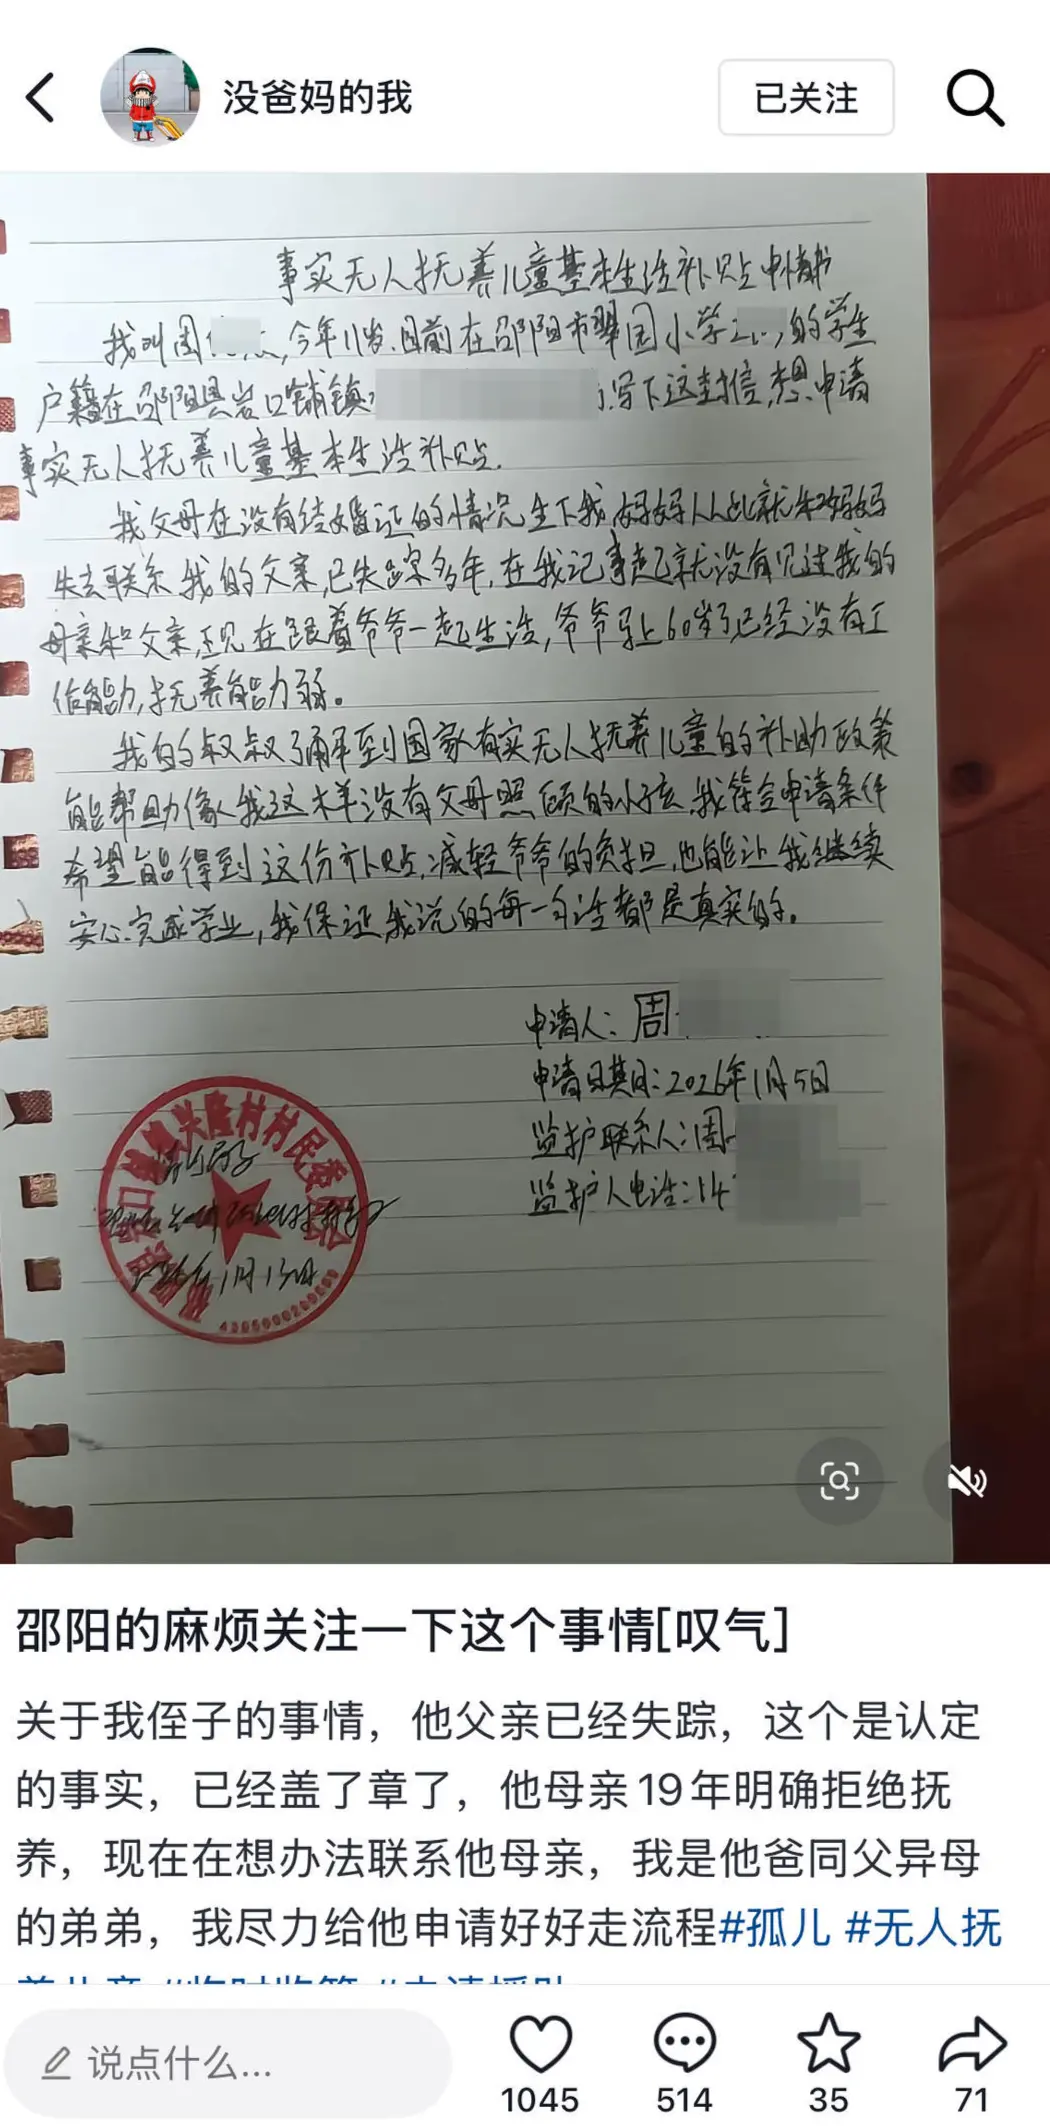 没爸妈的我
已关注
事实无人抚养儿童基本生活补贴申请书
我叫周 今年11岁.目前在邵阳市翠园小学 的学生
户籍在邵阳县岩口铺镇 写下这封信,想申请
事实无人抚养儿童基本生活补贴.
我父母在没有结婚证的情况生下我 妈妈从此就和妈妈
失去联系 我的父亲,已失踪多年,在我记事起就没有见过我的
母亲和父亲,现在跟着爷爷一起生活,爷爷马上60岁了已经没有工
作能力,抚养能力弱。
我的叔叔了解到国家有实无人抚养儿童的补助政策
能帮助像我这样没有父母照顾的小孩 我符合申请条件
希望能得到这份补贴,减轻爷爷的负担,也能让我继续
安心完成学业,我保证我说的每一句话都是真实的。
申请人:周
申请日期:2026年1月5日
监护联系人:周
监护人电话:14
兴隆村村民委员会
1月13日
邵阳的麻烦关注一下这个事情[叹气]
关于我侄子的事情，他父亲已经失踪，这个是认定
的事实，已经盖了章了，他母亲19年明确拒绝抚
养，现在在想办法联系他母亲，我是他爸同父异母
的弟弟，我尽力给他申请好好走流程#孤儿 #无人抚
说点什么...
1045
514
35
71